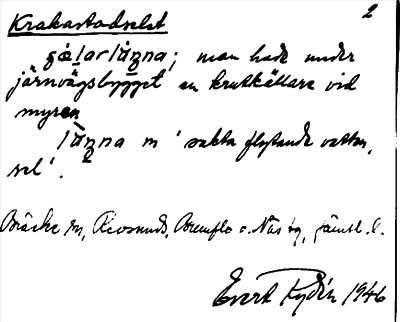 2
Krakastadselet
gǽlarlùnna; man hade under
järnvägsbygget en krutkällare vid
myren
lùnna m 'sakta flytande vatten,
sel'.
Bräcke sn, Revsunds, Brunflo o. Näs tg, Jämtl. l.
Evert 1946